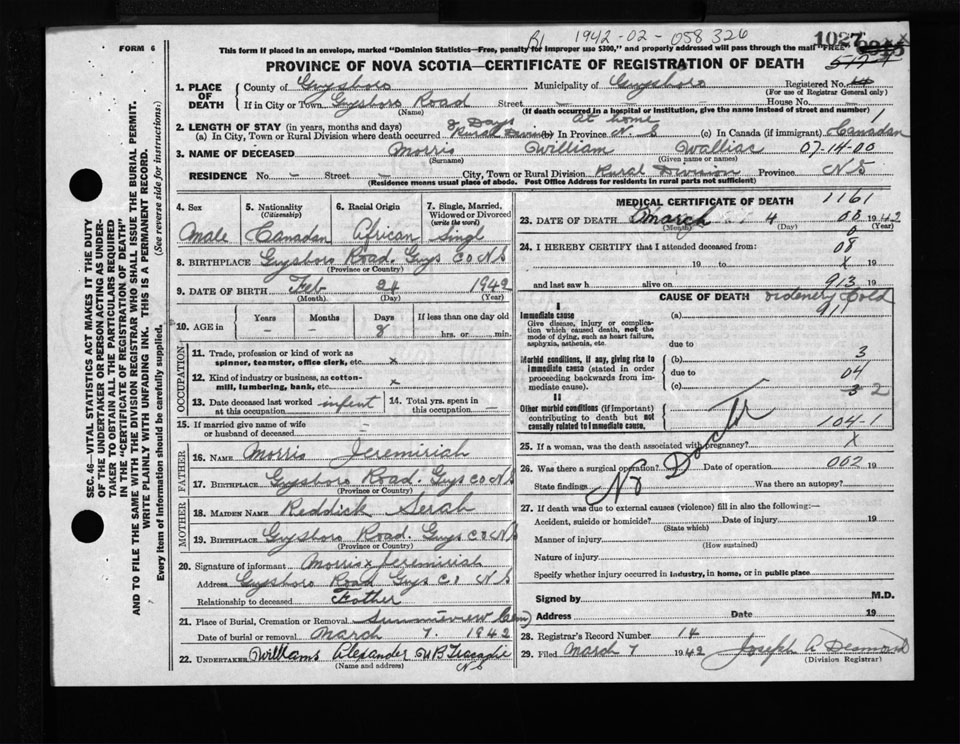 FORM 6
R1 1942-02-058326
1027
This form if placed in an envelope, marked "Dominion Statistics—Free, penalty for improper use $300," and properly addressed will pass through the mail "FREE"
PROVINCE OF NOVA SCOTIA—CERTIFICATE OF REGISTRATION OF DEATH
1. PLACE OF DEATH County of Guysboro Municipality of Guysboro Registered No. 14
(For use of Registrar General only)
If in City or Town Guysboro Road Street — House No. —
(Name) (If death occurred in a hospital or Institution, give the name instead of street and number)
2. LENGTH OF STAY (in years, months and days) 8 Days At home 1
(a) In City, Town or Rural Division where death occurred Rural Division (b) In Province N. S (c) In Canada (if immigrant) Canadan
3. NAME OF DECEASED Morris William Walliac 07-14-00
(Surname) (Given name or names)
RESIDENCE No. - Street - City, Town or Rural Division Rural Division Province N S
(Residence means usual place of abode. Post Office Address for residents in rural parts not sufficient)
4. Sex 5. Nationality (Citizenship) 6. Racial Origin 7. Single, Married, Widowed or Divorced (write the word)
Male Canadan African Singl
8. BIRTHPLACE Gysboro Road. Guys CO NS
(Province or Country)
9. DATE OF BIRTH Feb 24 1942
(Month) (Day) (Year)
10. AGE in Years Months Days If less than one day
— — 8 hrs. or min.
OCCUPATION
11. Trade, profession or kind of work as spinner, teamster, office clerk, etc. x
12. Kind of industry or business, as cotton-mill, lumbering, bank, etc. x
13. Date deceased last worked at this occupation infent 14. Total yrs. spent in this occupation —
15. If married give name of wife or husband of deceased —
FATHER
16. NAME Morris Jeremiriah
17. BIRTHPLACE Gysboro Road. Guys CO NS
(Province or Country)
MOTHER
18. MAIDEN NAME Reddick Serah
19. BIRTHPLACE Gysboro Road. Guys CO NS
(Province or Country)
20. Signature of informant Morris x Jeremiriah
Address Gysboro Road Guys Co NS
Relationship to deceased Father
21. Place of Burial, Cremation or Removal Sunnieview Cem)
Date of burial or removal March 7. 1942
22. UNDERTAKER Williams Alexander UB Tracadie NS
(Name and address)
MEDICAL CERTIFICATE OF DEATH 1161
23. DATE OF DEATH March 4 08 1942
(Month) (Day) (Year)
0
24. I HEREBY CERTIFY that I attended deceased from: 08
19 to x 19
and last saw h alive on 913 19
CAUSE OF DEATH
I
Immediate cause (a) ordenery Cold
911
Give disease, injury or complication which caused death, not the mode of dying, such as heart failure, asphyxia, asthenia, etc.
due to
Morbid conditions, if any, giving rise to immediate cause (stated in order proceeding backwards from immediate cause). (b) 3
due to 04
(c) 3 2
II
Other morbid conditions (if important) contributing to death but not causally related to immediate cause. 104-1
No Doctr
25. If a woman, was the death associated with pregnancy? X
26. Was there a surgical operation? Date of operation 002 19
State findings Was there an autopsy?
27. If death was due to external causes (violence) fill in also the following:—
Accident, suicide or homicide? Date of injury 19
(State which)
Manner of injury
(How sustained)
Nature of injury
Specify whether injury occurred in industry, in home, or in public place
Signed by M.D.
Address Date 19
28. Registrar's Record Number 14
29. Filed March 7 1942 Joseph A Desmond
(Division Registrar)
SEC. 46—VITAL STATISTICS ACT MAKES IT THE DUTY OF THE UNDERTAKER OR PERSON ACTING AS UNDERTAKER TO OBTAIN ALL THE PARTICULARS REQUIRED IN THE "CERTIFICATE OF REGISTRATION OF DEATH" AND TO FILE THE SAME WITH THE DIVISION REGISTRAR WHO SHALL ISSUE THE BURIAL PERMIT.
WRITE PLAINLY WITH UNFADING INK. THIS IS A PERMANENT RECORD.
Every item of Information should be carefully supplied. (See reverse side for instructions.)